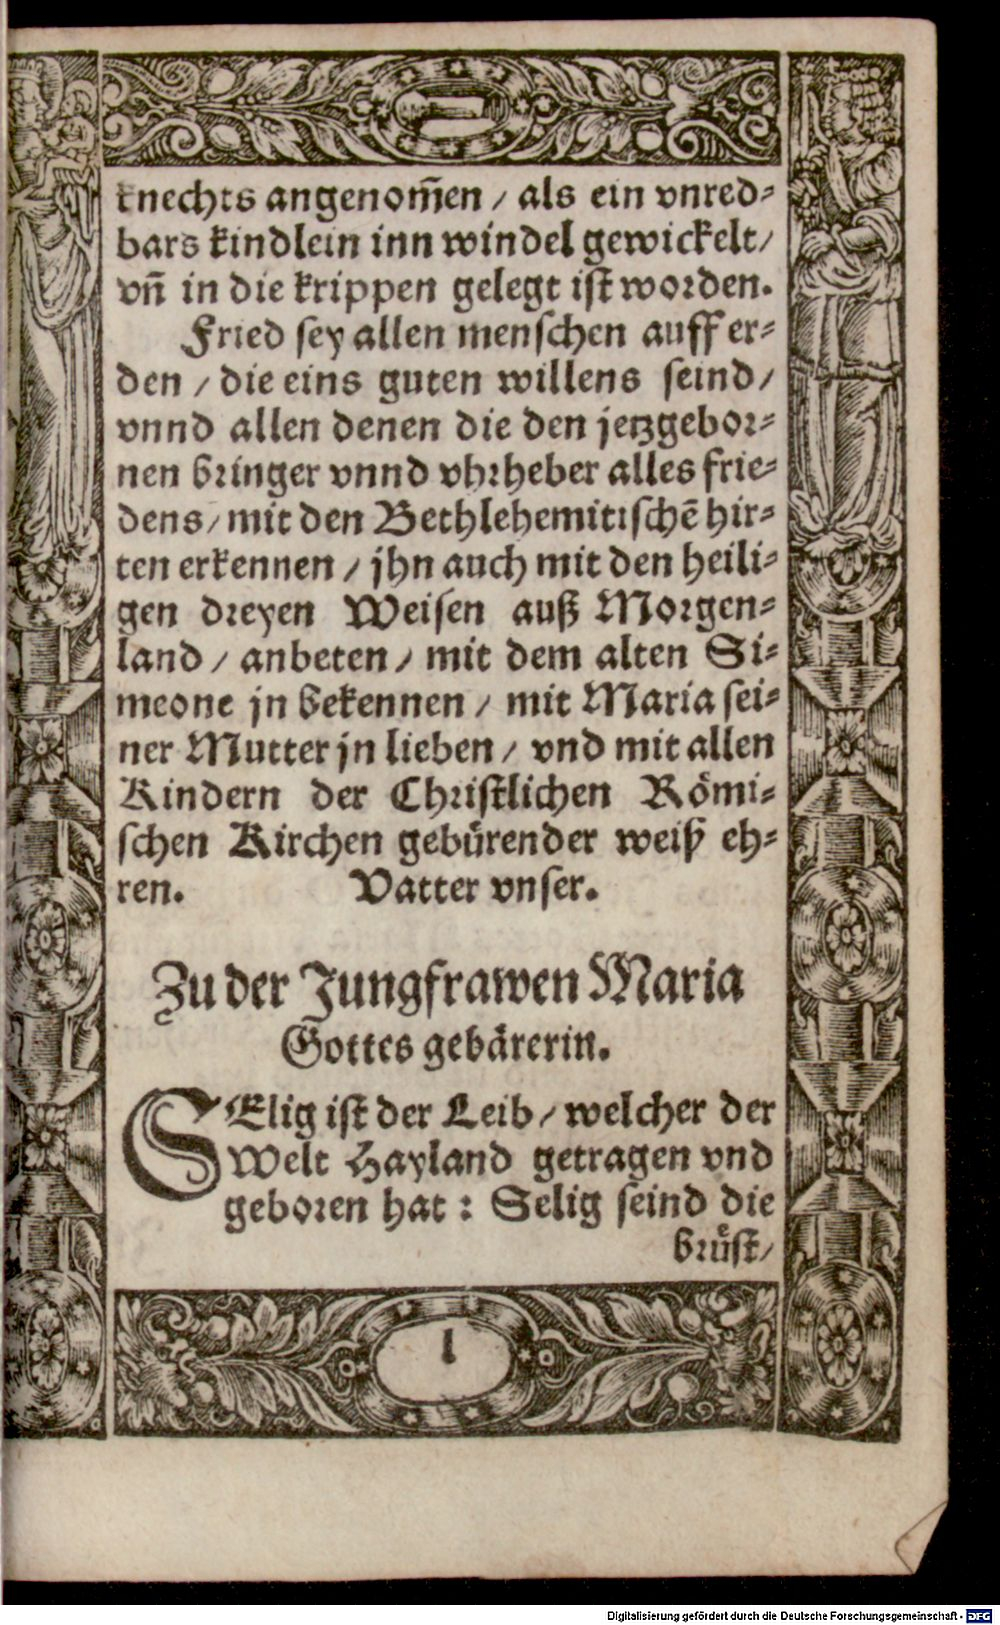 knechts angenom̄en / als ein vnred⸗
bars kindlein inn windel gewickelt /
vn̄ in die krippen gelegt ist worden.
Fried sey allen menschen auff er⸗
den / die eins guten willens seind /
vnnd allen denen die den jetzgebor⸗
nen bringer vnnd vhrheber alles frie⸗
dens / mit den Bethlehemitischē hir⸗
ten erkennen / jhn auch mit den heili⸗
gen dreyen Weisen auß Morgen⸗
land / anbeten / mit dem alten Si⸗
meone jn bekennen / mit Maria sei⸗
ner Mutter jn lieben / vnd mit allen
Kindern der Christlichen Römi⸗
schen Kirchen gebürender weiß eh⸗
ren. Vatter vnser.
Zu der Jungfrawen Maria
Gottes gebärerin.
SElig ist der Leib / welcher der
Welt Hayland getragen vnd
geboren hat : Selig seind die
brüst /
l
Digitalisierung gefördert durch die Deutsche Forschungsgemeinschaft - DFG